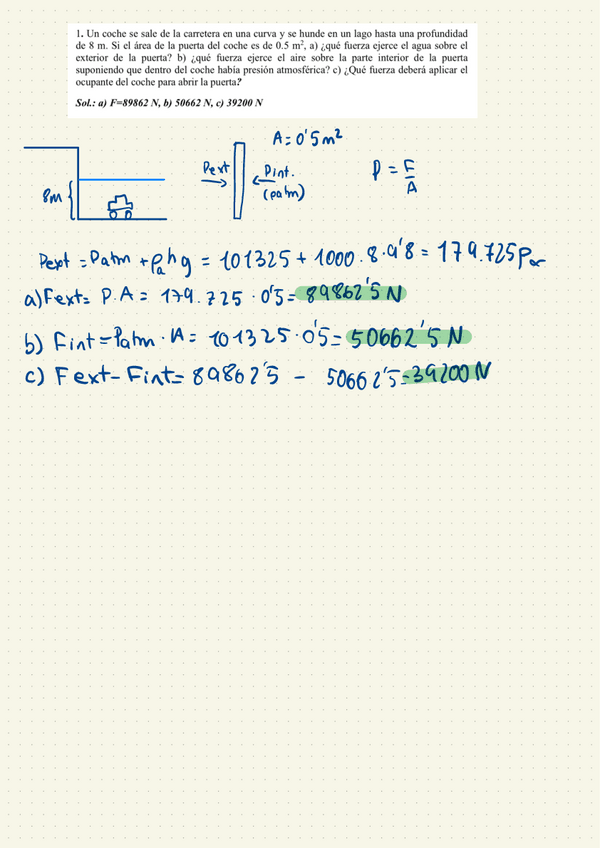 1. Un coche se sale de la carretera en una curva y se hunde en un lago hasta una profundidad
de 8 m. Si el área de la puerta del coche es de 0.5 m², a) ¿qué fuerza ejerce el agua sobre el
exterior de la puerta? b) ¿qué fuerza ejerce el aire sobre la parte interior de la puerta
suponiendo que dentro del coche había presión atmosférica? c) ¿Qué fuerza deberá aplicar el
ocupante del coche para abrir la puerta?
Sol.: a) F=89862 N, b) 50662 N, c) 39200 N
A = 0'5 m²
Pext
Pint.
(patm)
P = F/A
8m
Pext = Patm + ρₐ h g = 101325 + 1000 . 8 . 9'8 = 179.725 Pa
a) Fext = P.A = 179.725 · 0'5 = 89862'5 N
b) Fint = Patm · A = 101325 · 0'5 = 50662'5 N
c) Fext - Fint = 89862'5 - 50662'5 = 39200 N